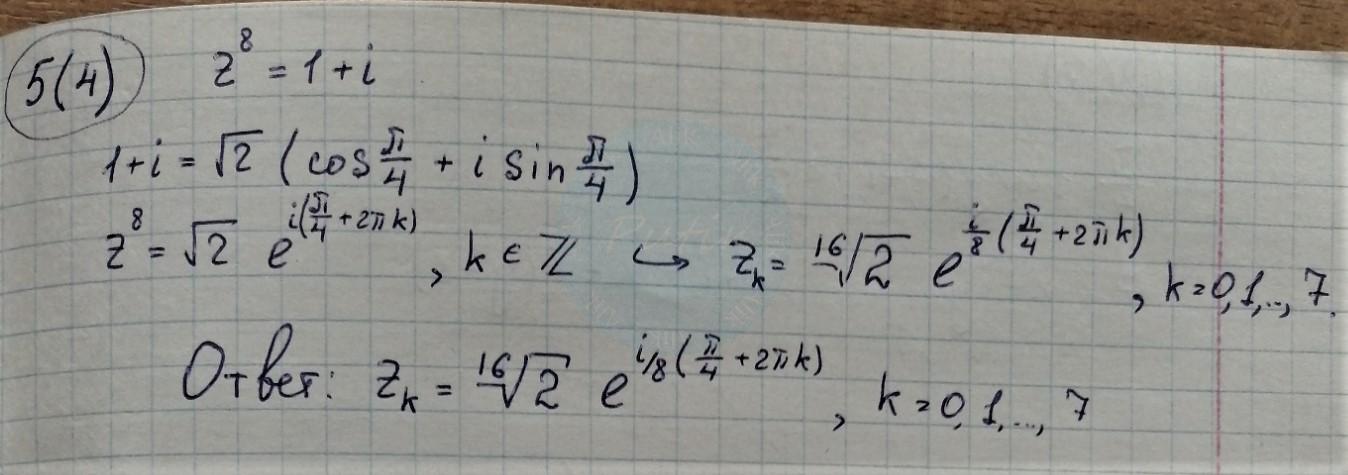 5(4) z⁸ = 1 + i
1+i = √2 (cos π/4 + i sin π/4)
z⁸ = √2 e^{i(π/4 + 2πk)}, k ∈ ℤ ↪ z_k = ¹⁶√2 e^{i/8 (π/4 + 2πk)}, k = 0, 1, .., 7.
Ответ: z_k = ¹⁶√2 e^{i/8 (π/4 + 2πk)}, k = 0, 1, ..., 7